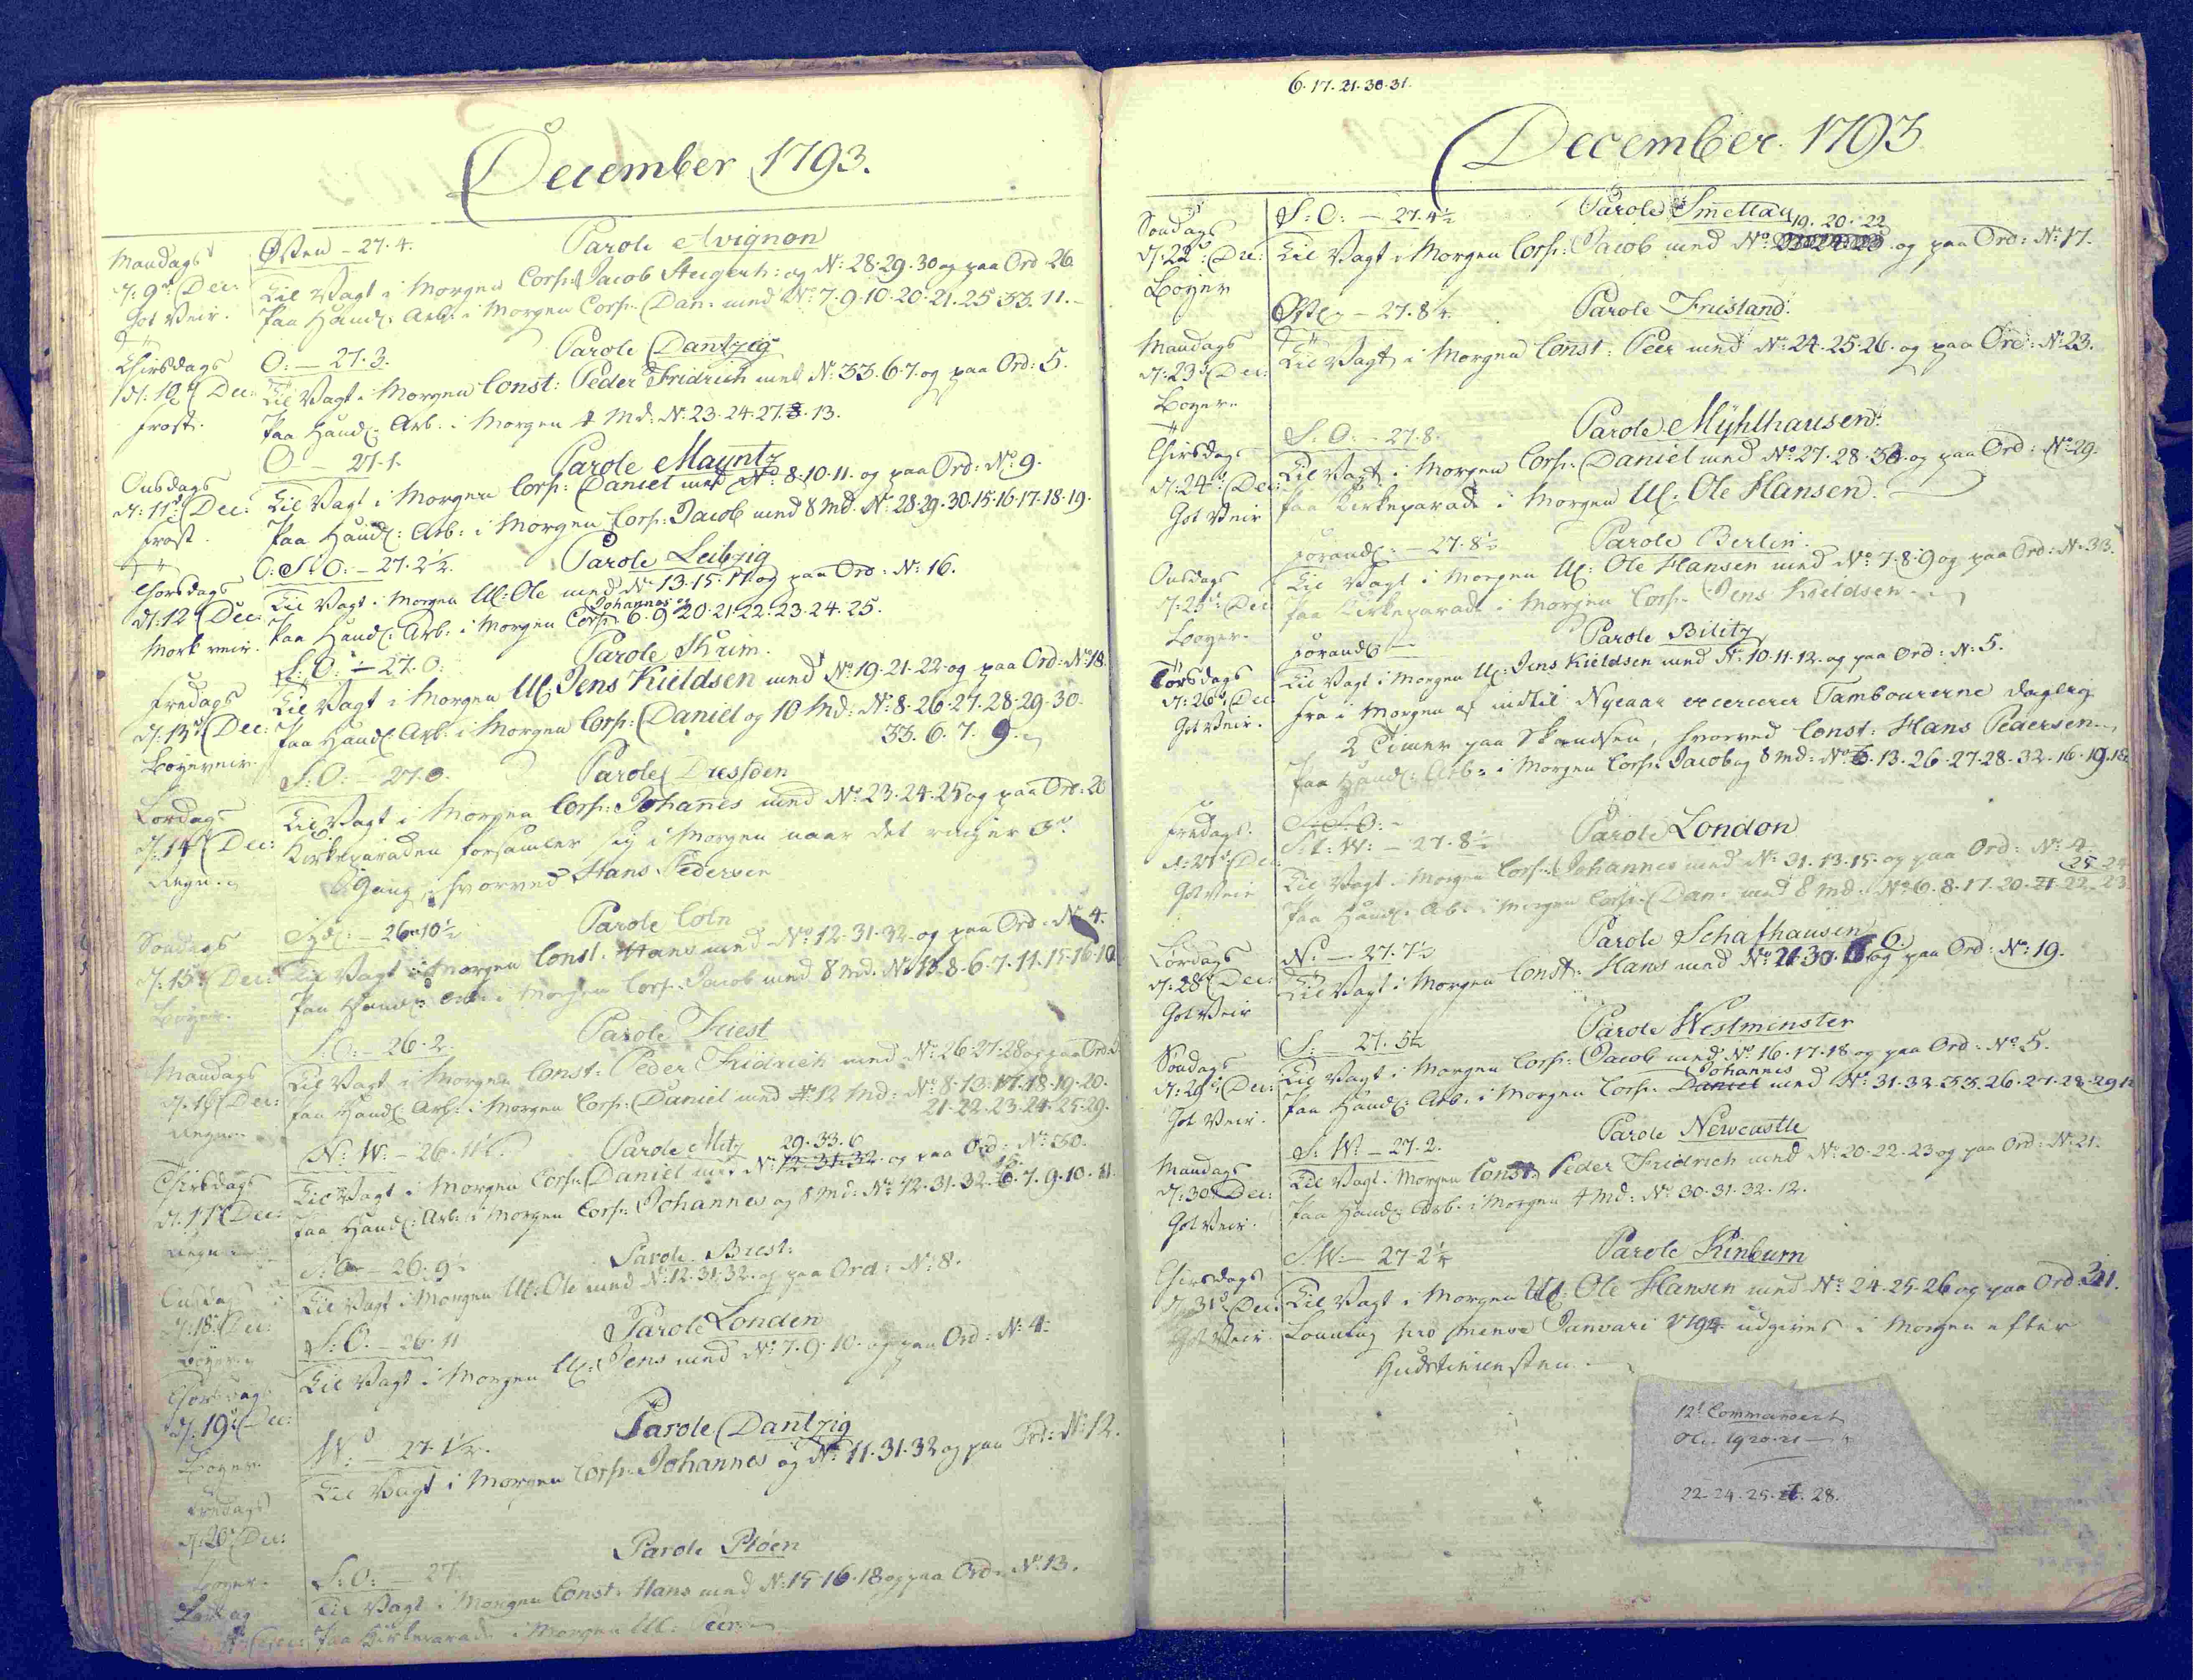 December 1793.
Mandags
d: 9de Dec:
Got Veir.
Østen – 27. 4.
Parole Avignon
Til Vagt i Morgen Corp: Jacob og No: 28. 29. 30 og paa Ord 26.
Paa Handl: Arb: i Morgen Corp: Dan: med No 7. 9. 10. 20. 21. 25. 33. 11. –
Thirsdags
d: 10de Dec:
frost.
O: – 27. 3.
Parole Dantzig
Til Vagt i Morgen Const: Peder Fridrich med No: 33. 6. 7 og paa Ord: 5.
Paa Handl: Arb: i Morgen 4 Md: No. 23. 24. 27. 13.
Onsdags
d: 11te Dec:
frost.
O – 27. 1.
Parole Mayntz
Til Vagt i Morgen Corp: Daniel med No: 8. 10. 11. og paa Ord: No: 9.
Paa Handl: Arb: i Morgen Corp: Jacob med 8 Md. No: 28. 29. 30. 15. 16. 17. 18. 19.
Thorsdags
d: 12te Dec:
Mork veir.
O: S: O: – 27. 2½.
Parole Leibzig
Til Vagt i Morgen Ul: Ole med No 13. 15. 17 og paa Ord: No: 16.
Johannes og
Paa Handl: Arb: i Morgen Corp: 6. 9 20. 21. 22. 23. 24. 25.
Fredags
d: 13de Dec:
S: O: – 27. 0.
Til Vagt i Morgen Ul: Jens Kieldsen med No: 19. 21. 22 og paa Ord: No 18.
Paa Handl: Arb: i Morgen Corp: Daniel og 10 Md: No: 8. 26. 27. 28. 29. 30.
33. 6. 7. 9.
Lørdags
d: 14de Dec:
Regn.
S: O: – 27. 0.
Parole Dresden
Til Vagt i Morgen Corp: Johannes med No 23. 24. 25 og paa Ord: 20
Kirkeparaden forsamler sig i Morgen naar det ringer 3de
Gang, hvorved Hans Pedersen
Søndags
d: 15de Dec:
Syd: – 26. 10½
Parole Cöln
Til Vagt i Morgen Const. Hans med No: 12. 31. 32 og paa Ord: No 4.
Paa Handl: Arb: i Morgen Corp: Jacob med 8 Md. No 13. 8. 6. 7. 11. 15. 16. 10
Mandags
d: 16de Dec:
Regn
S: O: – 26. 2.
Parole Triest
Til Vagt i Morgen Const: Peder Fridrich med No: 26. 27. 28 og paa Ord:
Paa Handl: Arb: i Morgen Corp: Daniel med 12 Md: No: 8. 13. 17. 18. 19. 20.
21. 22. 23. 24. 25. 29.
Thirsdags
d: 17de Dec:
Regn
N: W: – 26.
Parole Mitz
29. 33. 6
Til Vagt i Morgen Corp: Daniel med No: 12. 31. 32 og paa Ord: No: 30.
Paa Handl: Arb: i Morgen Corp: Johannes og 8 Md: No: 12. 31. 32. 6. 7. 9. 10. 11.
Onsdags
d: 18de Dec:
S: O – 26. 9
Parole Brest.
Til Vagt i Morgen Ul: Ole med No: 12. 31. 32. og paa Ord: No: 8.
Thorsdags
d: 19de Dec:
S: O. – 26. 11
Parole Londen
Til Vagt i Morgen Ul: Jens med No: 7. 9. 10. og paa Ord: No: 4.
Fredags
d: 20de Dec:
W: – 27. 1½.
Parole Dantzig
Til Vagt i Morgen Corp: Johannes og No: 11. 31. 32 og paa Ord: No: 12.
S: O: – 27.
Parole Pløen
Til Vagt i Morgen Const: Hans med No: 15 16. 18 og paa Ord: No. 13.
Paa Kirkeparade i Morgen Ul: Peer
6. 17. 21. 30. 31.
December 1793
Søndags
d: 22de Dec:
S: O: – 27. 4½
Parole Smettau
19. 20. 22
Til Vagt i Morgen Corp: Jacob med No: og paa Ord: No: 17.
Mandags
d: 23de Dec:
Østl: – 27. 8¼.
Parole Friisland.
Til Vagt i Morgen Const: Peer med No: 24. 25. 26. og paa Ord: No 23.
Thirsdags
d: 24de Dec:
Got Veir
S. O: – 27. 8.
Parole Mÿhlhausen.
Til Vagt i Morgen Corp: Daniel med No: 27. 28. 30 og paa Ord: No 29.
Paa Kirkeparade i Morgen Ul: Ole Hansen.
Onsdags
d: 25de Dec:
forandl: – 27. 8½
Parole Berlin.
Til Vagt i Morgen Ul: Ole Hansen med No: 7. 8. 9 og paa Ord: No. 33.
Paa Kirkeparade i Morgen Corp: Jens Kieldsen.
Torsdags
d: 26de Dec:
Got Veir.
forandl: –
Parole Bilitz
Til Vagt i Morgen Ul: Jens Kieldsen med No: 10. 11. 12. og paa Ord: No: 5.
Fra i Morgen af indtil Nyeaar excercerer Tambourerne daglig
2 Timer paa Skandsen, hvorved Const: Hans Pedersen
Paa Handl: Arb: i Morgen Corp: Jacob og 8 Md: No 6. 13. 26. 27. 28. 32. 16. 19. 18.
Fredags.
d: 27de Dec:
Got Veir
S: S: O: –
St: W: – 27. 8½
Parole London
Til Vagt i Morgen Corp: Johannes med No: 31. 13. 15. og paa Ord: No 4.
25. 24
Paa Handl: Arb: i Morgen Corp: Dan: med 8 Md: No: 6. 8. 17. 20. 21. 22. 23
Lørdags
d: 28de Dec:
Got Veir
N: – 27. 7½
Parole Schafhausen
6.
Til Vagt i Morgen Const: Hans med No: 21. 30. og paa Ord: No: 19.
Søndags
d: 29de Dec:
Got Veir.
S: 27. 5½
Parole Westminster
Til Vagt i Morgen Corp: Jacob med No 16. 17. 18 og paa Ord: No 5.
Johannes
Paa Handl: Arb: i Morgen Corp: Daniel med No: 31. 32. 33. 26. 27. 28. 29. 12
Mandags
d: 30de Dec:
Got Veir.
S: W: – 27. 2.
Parole Newcastle
Til Vagt i Morgen Const: Peder Fridrich med No: 20. 22. 23 og paa Ord: No: 21.
Paa Handl: Arb: i Morgen 4 Md: No: 30. 31. 32. 12.
Thirsdags
d: 31te Dec:
Got Veir.
S: W: – 27. 2¼
Parole Kinburn
Til Vagt i Morgen Ul: Ole Hansen med No: 24. 25. 26 og paa Ord: 31.
Lønning pro mense Januari 1794 udgives i Morgen efter
Gudstienesten.
12t Commandert
Ole 19 20. 21 –
22. 24. 25. 26. 28.